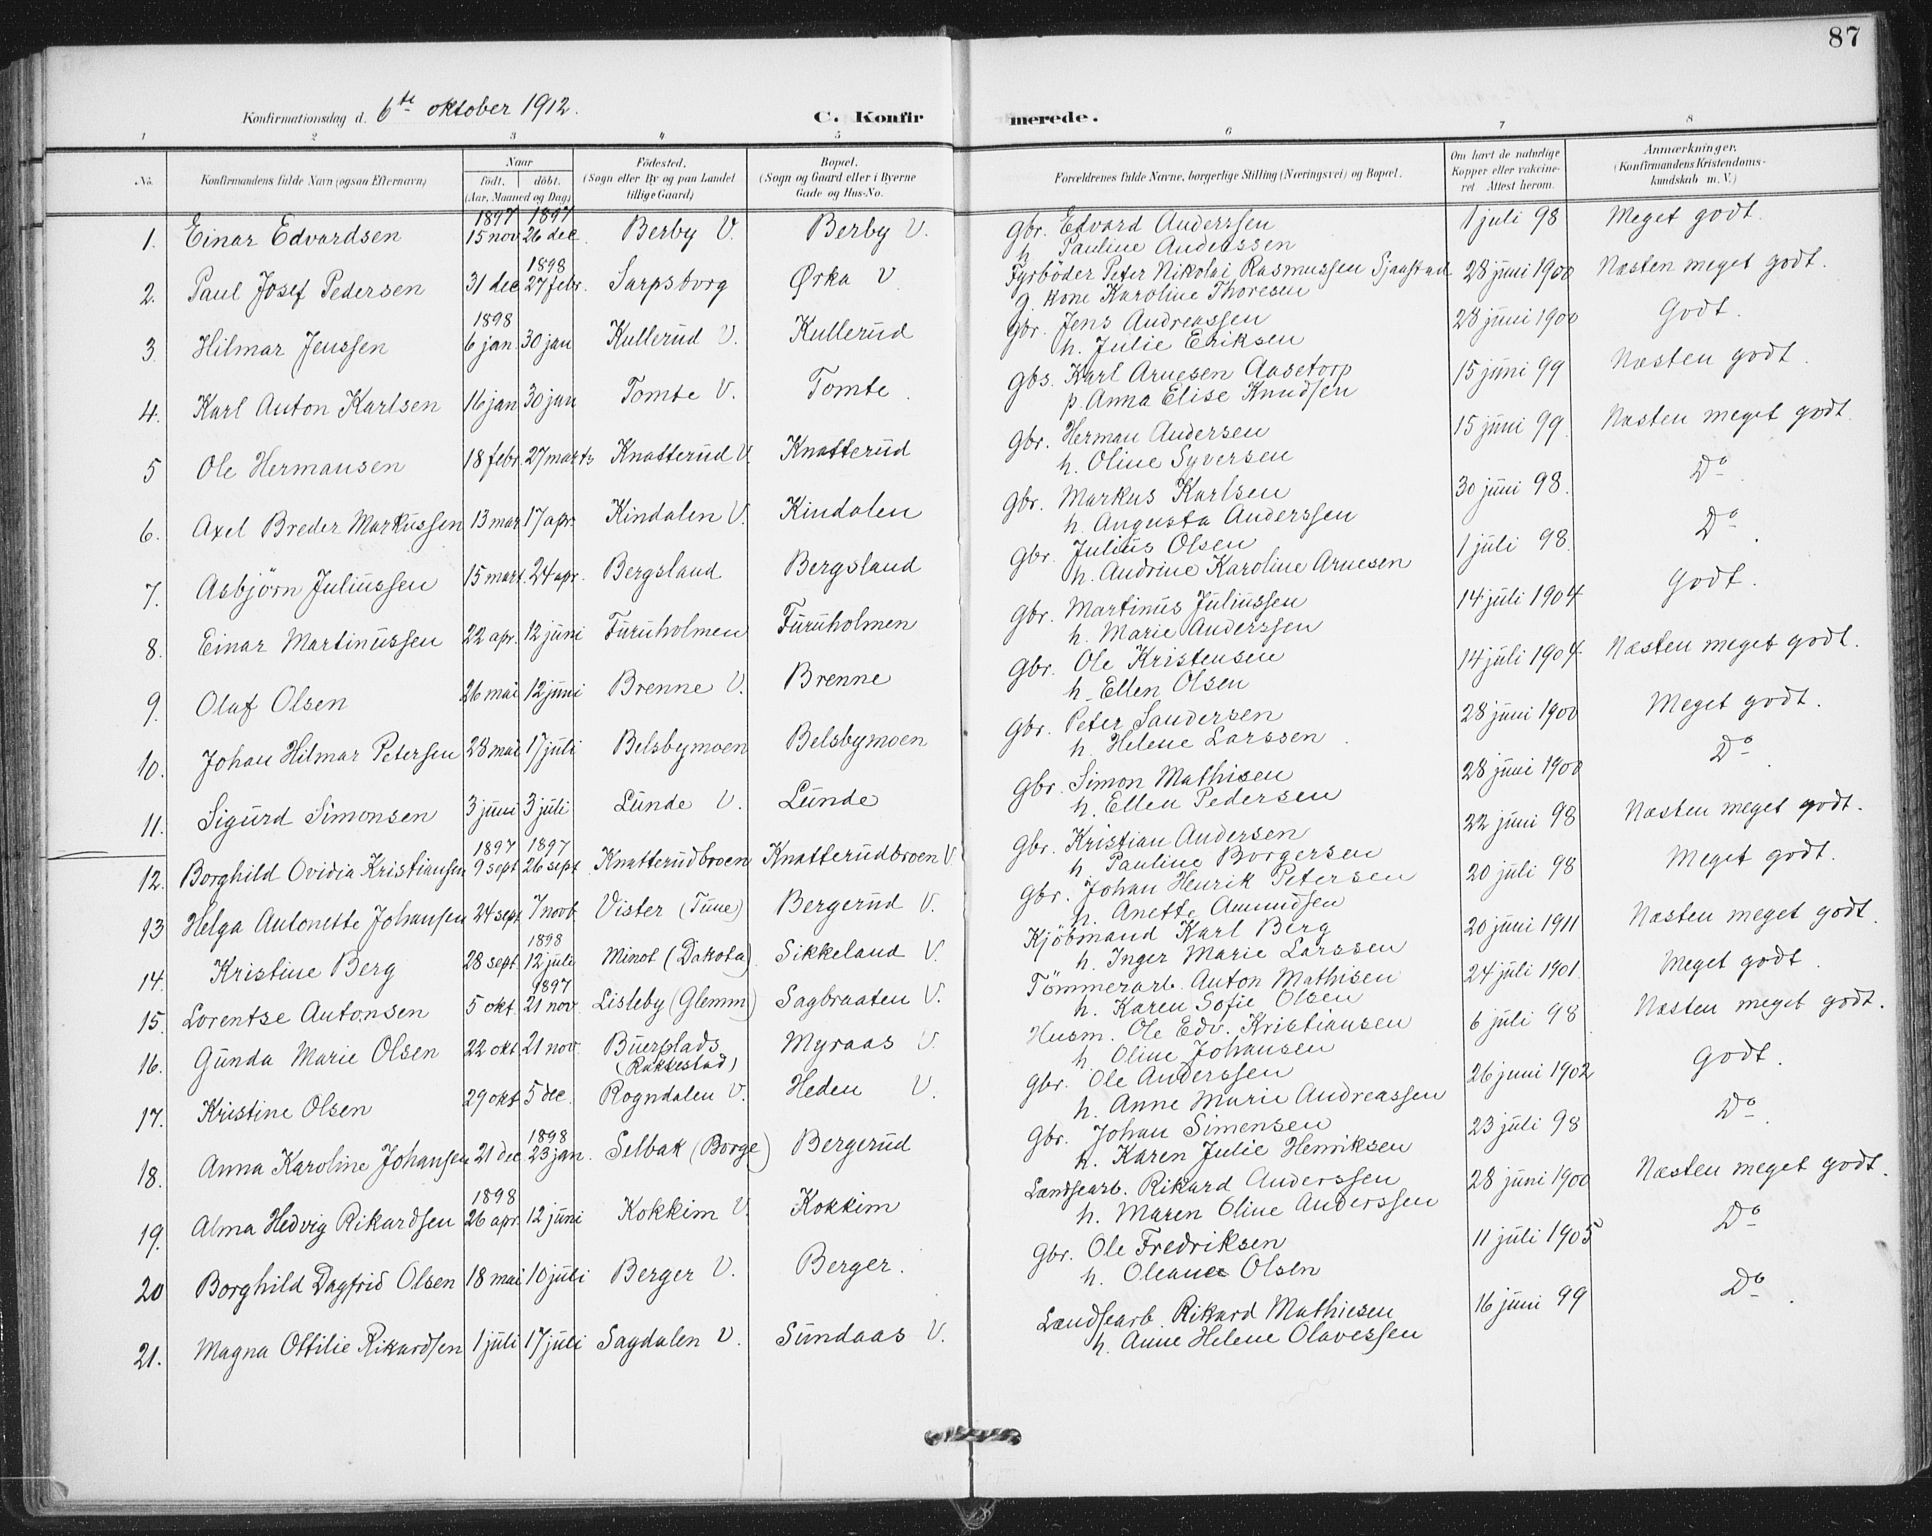 87
Konfirmationsdag d. 6te oktober 1912. C. Konfirmerede.
1 2 3 4 5 6 7 8
No. Konfirmandens fulde Navn (ogsaa Efternavn) Naar født, døbt. (Aar, Maaned og Dag) Fødested. (Sogn eller By og paa Landet tillige Gaard) Bopæl. (Sogn og Gaard eller i Byerne Gade og Hus-No. Forældrenes fulde Navne, borgerlige Stilling (Næringsvei) og Bopæl. Om havt de naturlige Kopper eller vakcineret Attest herom. Anmærkninger. (Konfirmandens Kristendomskundskab m. V.)
1. Einar Edvardsen 1897 15 nov 1897 26 dec. Berby V. Berby V. Gbr. Edvard Anderssen 1 juli 98 Meget godt.
h. Pauline Anderssen
2. Paul Josef Pedersen 31 dec 1898 27 febr. Sarpsborg Ørka V Fyrbøder Peter Nikolai Rasmussen Sjaastad 28 juni 1900 Næsten meget godt.
g. kone Karoline Thoresen
3. Hilmar Jenssen 1898 6 jan. 30 jan Kullerud V. Kullerud Gbr. Jens Andreassen 28 juni 1900 Godt.
h. Julie Eriksen
4. Karl Anton Karlsen 16 jan 30 jan Tomte V. Tomte Gbs. Karl Arnesen Aasetorp 15 juni 99 Næsten godt.
p. Anna Elise Knudsen
5 Ole Hermansen 18 febr. 27 marts Knatterud V. Knatterud Gbr. Herman Andersen 15 juni 99. Næsten meget godt.
h. Oline Syversen
6. Axel Breder Markussen 13 mar 17 apr. Kindalen V. Kindalen Gbr. Markus Karlsen 30 juni 98. Do
h. Augusta Anderssen
7. Asbjørn Juliussen 15 mart. 24 apr. Bergsland Bergsland Gbr. Julius Olsen 1 juli 98. Do
h. Andrine Karoline Arnesen
8. Einar Martinussen 22 apr. 12 juni Furuholmen Furuholmen Gbr. Martinus Juliussen 14 juli 1904 Godt.
h. Marie Anderssen
9. Olaf Olsen 26 mai 12 juni Brenne V. Brenne Gbr. Ole Kristensen 14 juli 1904. Næsten meget godt.
h. Ellen Olsen
10. Johan Hilmar Petersen 28 mai 17 juli Belsbymoen Belsbymoen Gbr. Peter Sandersen 28 juni 1900 Meget godt.
h. Helene Larssen
11. Sigurd Simonsen 3 juni 3 juli Lunde V. Lunde Gbr. Simon Mathisen 28 juni 1900 Do
h. Ellen Pedersen
12. Borghild Ovidia Kristiansen 1897 9 sept 1897 26 sept Knatterudbroen Knatterudbroen V Gbr. Kristian Andersen 22 juni 98 Næsten meget godt.
h. Pauline Borgersen
13 Helga Antonette Johansen 24 sept 7 novb. Vister (Tune) Bergerud V. Gbr. Johan Henrik Petersen 20 juli 98 Meget godt.
h. Anette Amundsen
14. Kristine Berg 28 sept. 1898 12 juli Minot (Dakota) Sikkeland V. Kjøbmand Karl Berg 20 juni 1911 Næsten meget godt.
h. Inger Marie Larssen
15. Lorentse Antonsen 5 okt. 1897 21 nov. Lisleby (Glemm) Sagbraaten V. Tømmerarb. Anton Mathisen 24 juli 1901. Meget godt.
h. Karen Sofie Olsen
16. Gunda Marie Olsen 22 okt. 21 nov. Buerplads (Rakkestad) Myraas V. Husm. Ole Edv. Kristiansen 6 juli 98 Næsten meget godt.
h. Oline Johansen
17. Kristine Olsen 29 okt. 5 dec. Rogndalen V. Heden V. Gbr. Ole Anderssen 26 juni 1902 Godt.
h. Anne Marie Andreassen
18. Anna Karoline Johansen 21 dec 1898 23 jan. Selbak (Borge) Bergerud Gbr. Johan Simensen 23 juli 98 Do
h. Karen Julie Henriksen
19. Alma Hedvig Rikardsen 1898 26 apr. 12 juni Kokkim V. Kokkim Landsearb. Rikard Anderssen 28 juni 1900 Næsten meget godt.
h. Maren Oline Anderssen
20 Borghild Dagfrid Olsen 18 mai 10 juli Berger V. Berger. Gbr. Ole Fredriksen 11 juli 1905 Do
h. Oleane Olsen
21. Magna Ottilie Rikardsen 1 juli 17 juli Sagdalen V. Sundaas V. Landsearb. Rikard Mathiesen 16 juni 99 Do
h. Anne Helene Olavessen